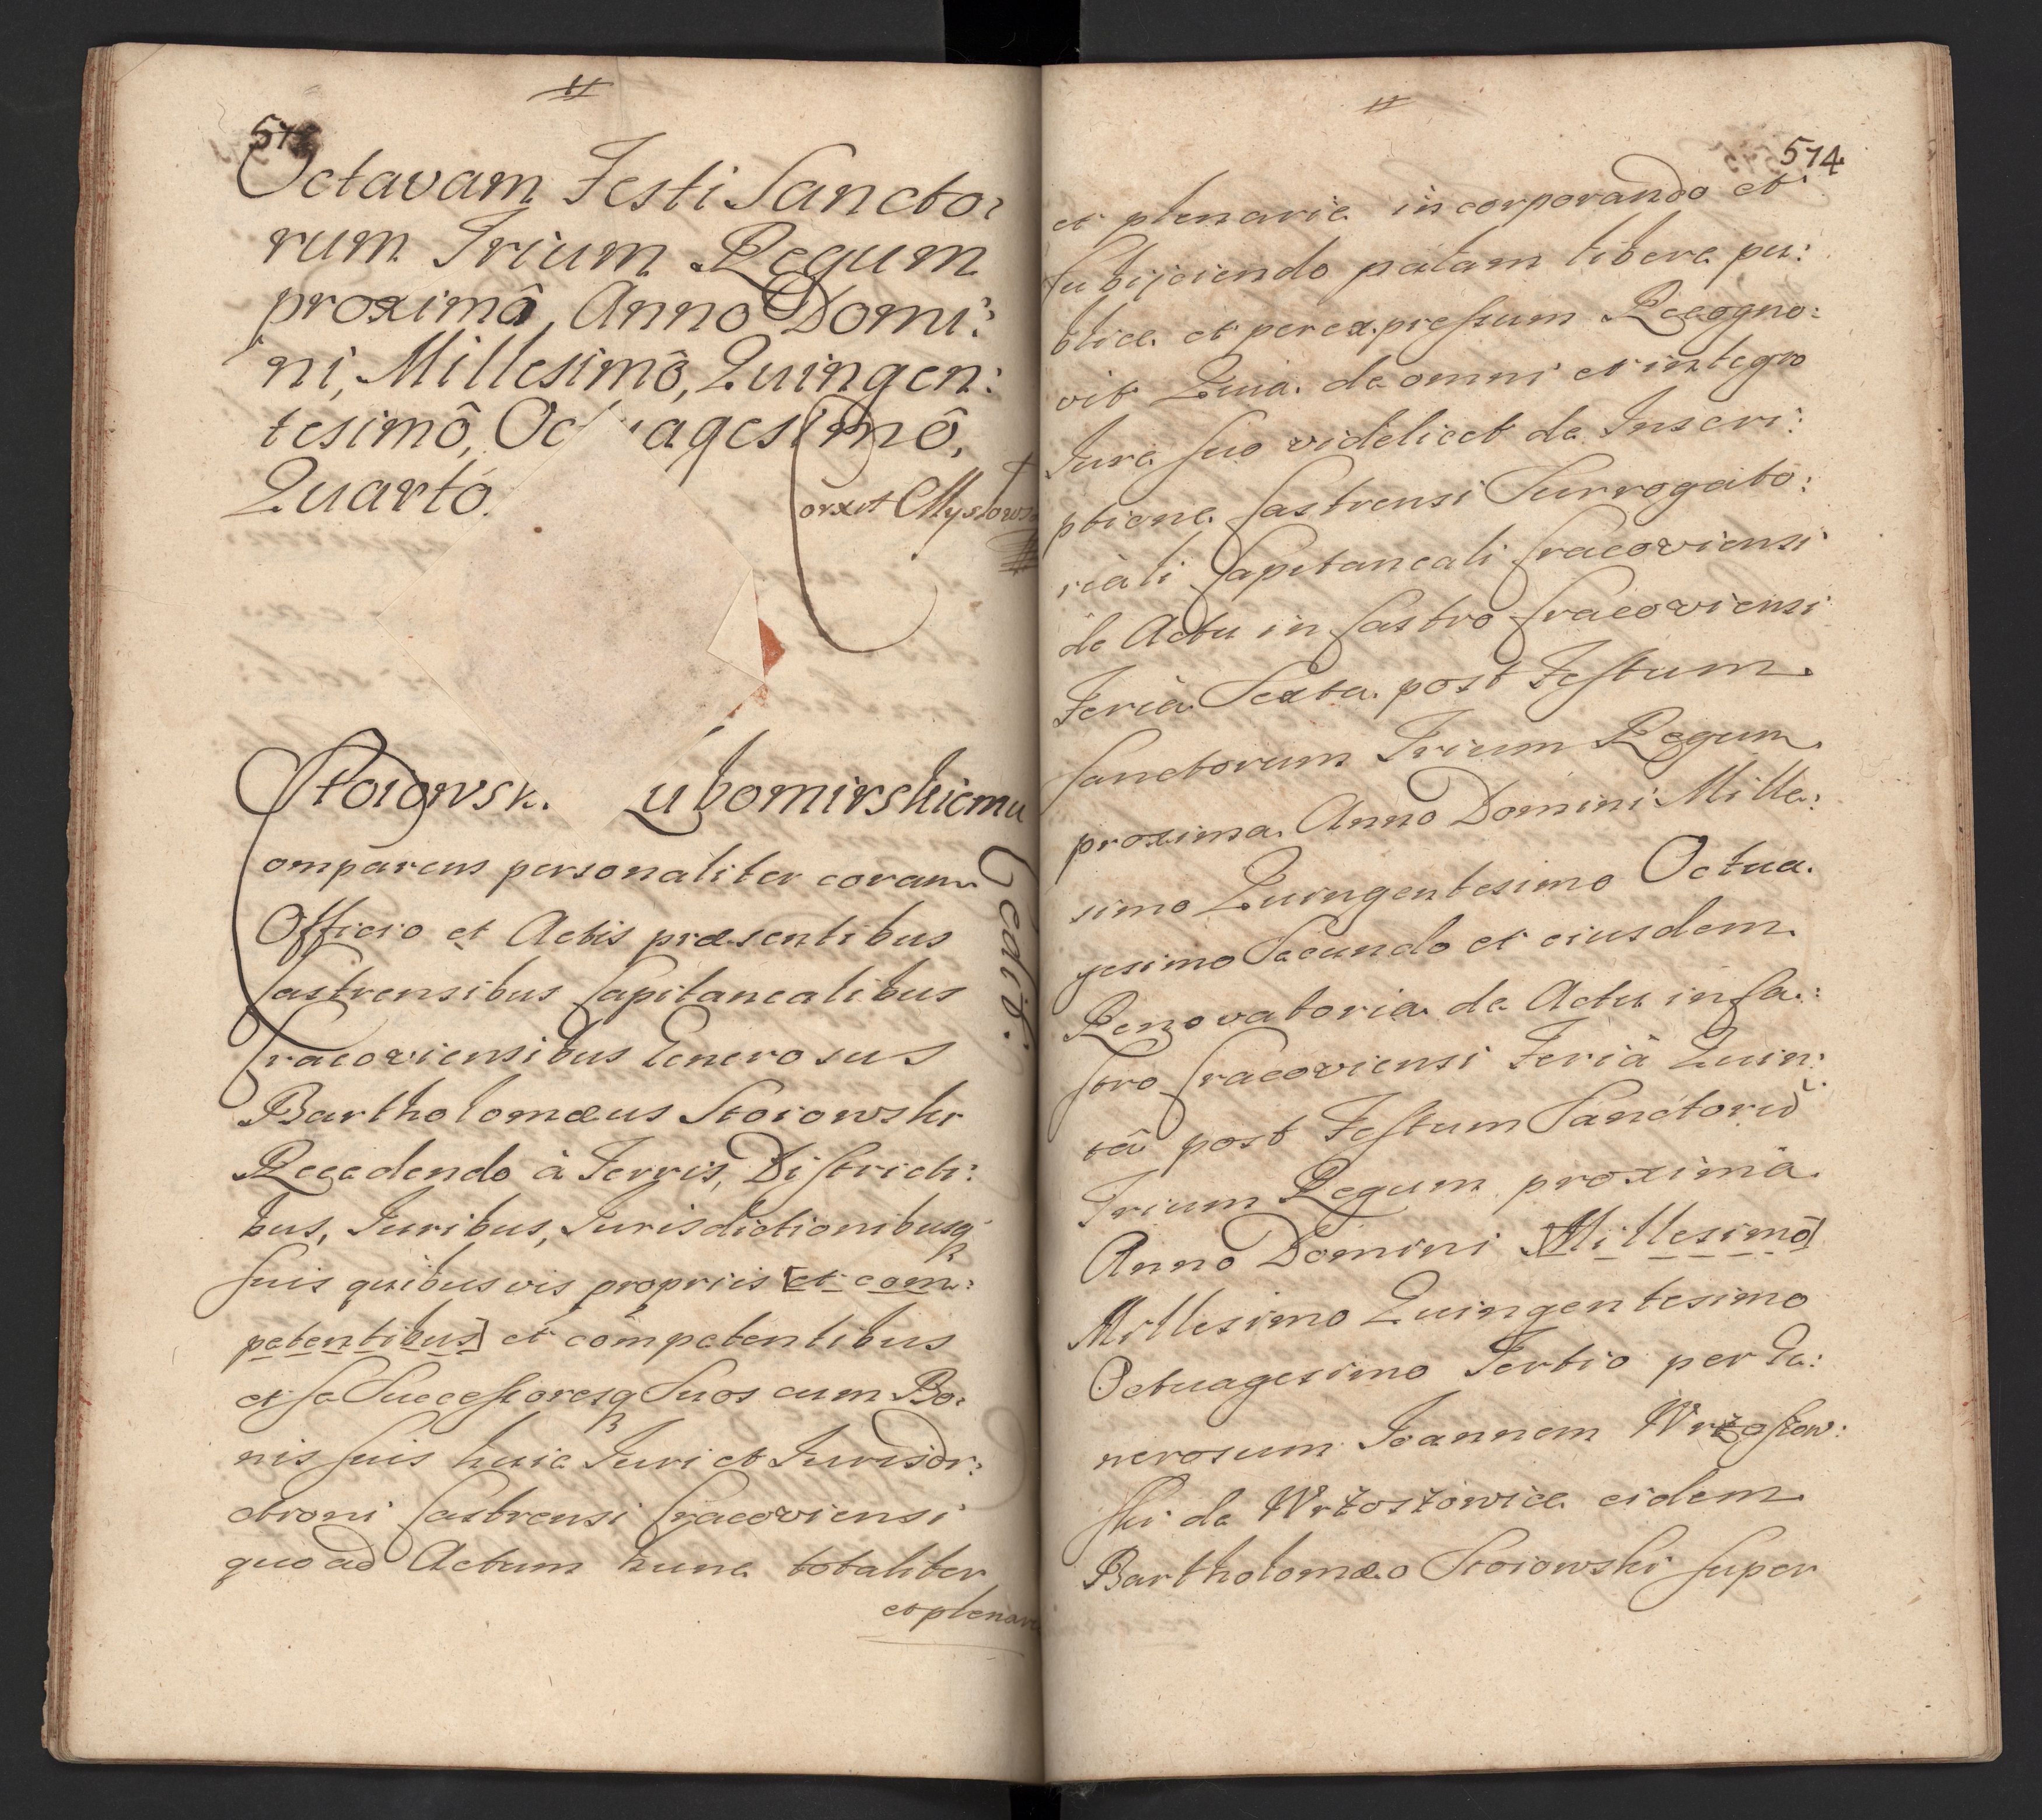 Octavam Festi Sancto:
rum Trium Regum
proximâ, Anno Domi:
ni, Millesimô, Quingen:
tesimô, Oc agesimô,
Quartô.
Corxit Mysłows
Stoiowsk. Lubomirskiemu
Cedit.
Comparens personaliter coram
Officio et Actis præsentibus
Castrensibus Capitanealibus
Cracoviensibus Generosus
Bartholomæus Stoiowski
Recedendo à Terris, Districti:
bus, Iuribus, Iurisdictionibusq
suis quibusvis propriis [et com:
petentibus] et competentibus
et se Successoresq Suos cum Bo:
nis suis huic Iuri et Iurisdi:
ctioni Castrensi Cracoviensi
quo ad Actum hunc totaliter
et plenarie
574
et plenarie incorporando et
subijciendo palam libere pu:
blice et per expressum Recogno:
vit Quia de omni et integro
Iure suo videlicet de Inscri:
ptione Castrensi Surrogato:
riali Capitaneali Cracoviensi
de Actu in Castro Cracoviensi
Feria Sexta post Festum
Sanctorum Trium Regum
proxima Anno Domini Mille:
simo Quingentesimo Octua.
gesimo Secundo et eiusdem
Renovatoria de Actu in Ca:
stro Cracoviensi Feriâ Quin:
tâ post Festum Sanctorũ
Trium Regum proximâ
Anno Domini [Millesimô]
Millesimo Quingentesimo
Octuagesimo Tertio per Ge:
nerosum Ioannem Wrzostow:
ski de Wrzostowice eidem
Bartholomæo Stoiowski super